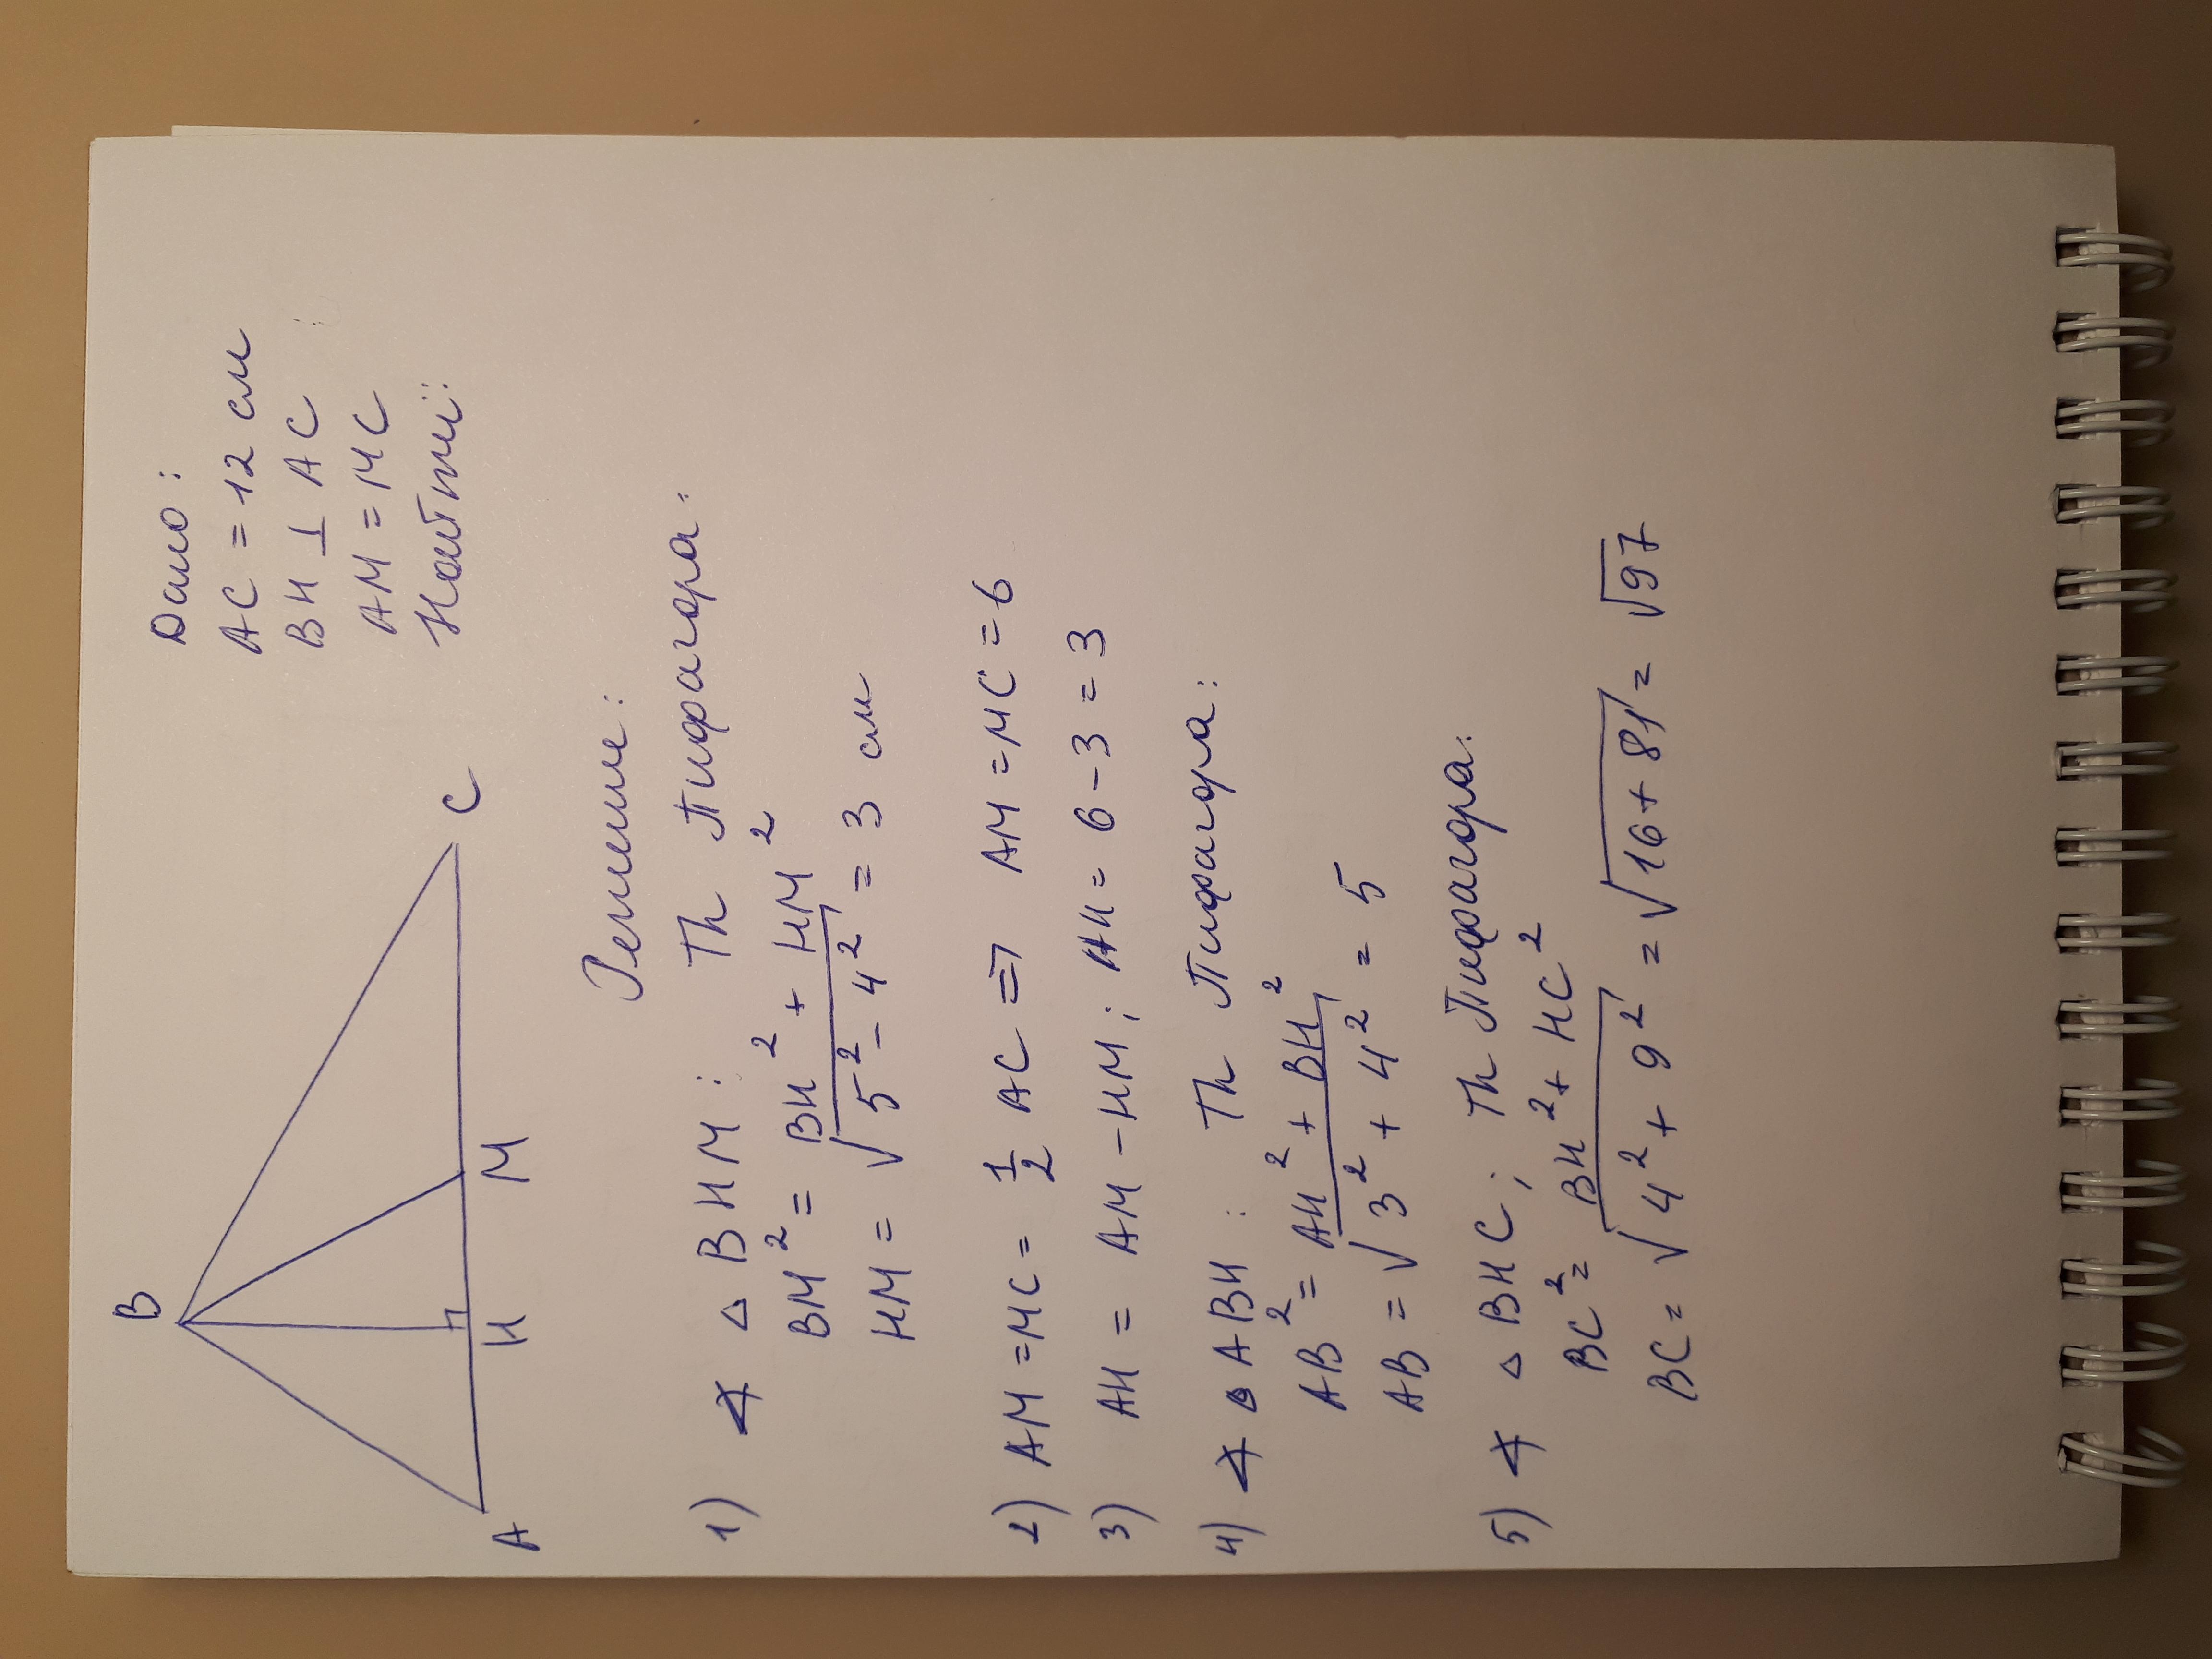 B
A
H
M
C
Дано:
AC = 12 см
BH ⊥ AC
AM = MC
Найти:
Решение:
1) ∢ △ BHM: Th Пифагора:
BM² = BH² + HM²
HM = √5² - 4² = 3 см
2) AM = MC = 1/2 AC ⇒ AM = MC = 6
3) AH = AM - HM; AH = 6 - 3 = 3
4) ∢ △ ABH: Th Пифагора:
AB² = AH² + BH²
AB = √3² + 4² = 5
5) ∢ △ BHC; Th Пифагора:
BC² = BH² + HC²
BC = √4² + 9² = √16 + 81 = √97